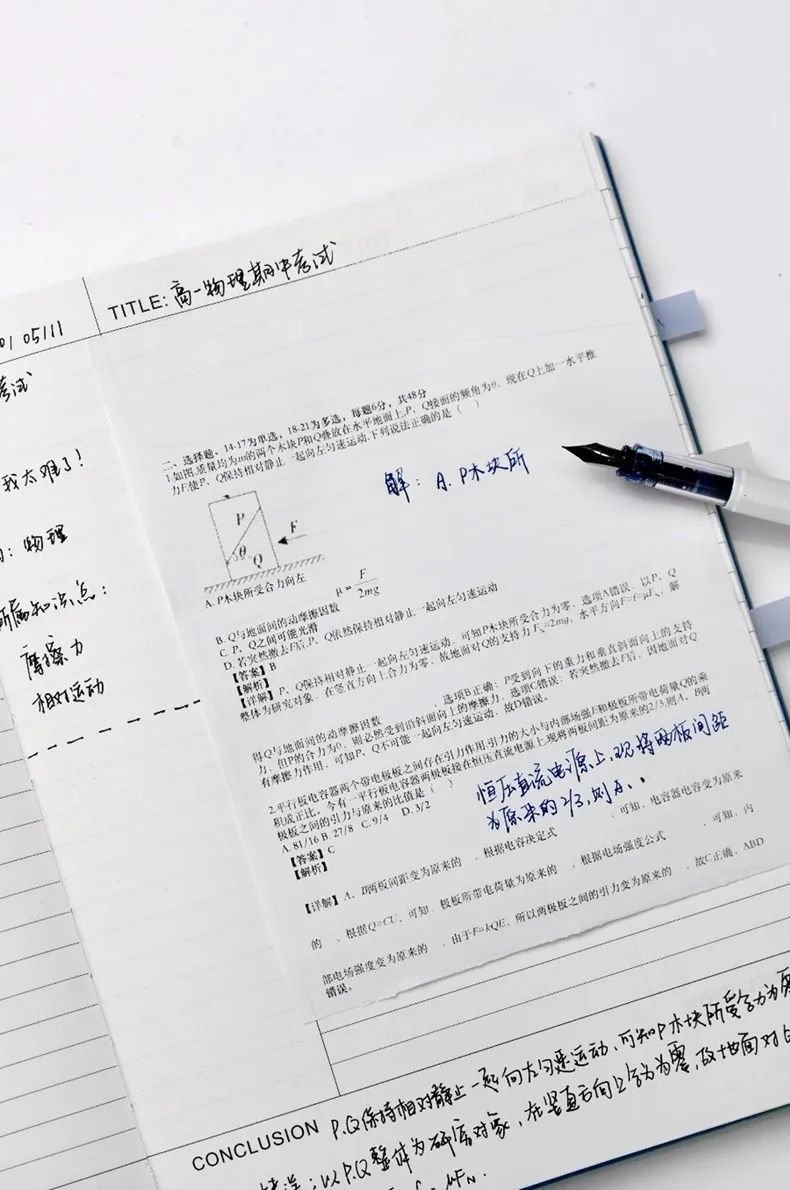 01 05111
考试
我太难了!
: 物理
所属知识点:
摩擦力
相对运动
TITLE: 高一物理期中考试
二、选择题、14-17为单选，18-21为多选，每题6分，共48分
1.如图,质量均为m的两个木块P和Q叠放在水平地面上,P、Q接面的倾角为θ，现在Q上加一水平推
力F,使P、Q保持相对静止一起向左匀速运动,下列说法正确的是（ ）
解: A. P木块所
P
θ
Q
F
A. P木块所受合力向左
B. Q与地面间的动摩擦因数 μ = F/2mg
C. P、Q之间可能光滑
D. 若突然撤去F后,P、Q依然保持相对静止一起向左匀速运动
【答案】B
【解析】
【详解】P、Q保持相对静止一起向左匀速运动，可知P木块所受合力为零，选项A错误；以P、Q
整体为研究对象，在竖直方向上合力为零，故地面对Q的支持力FN=2mg，水平方向F=f=μFN，解
得Q与地面间的动摩擦因数 ，选项B正确；P受到向下的重力和垂直斜面向上的支持
力，但P的合力为0，则必然受到沿斜面向上的摩擦力，选项C错误；若突然撤去F后，因地面对Q
有摩擦力作用，可知P、Q不可能一起向左匀速运动，故D错误。
2.平行板电容器两个带电极板之间存在引力作用,引力的大小与内部场强E和极板所带电荷量Q的乘
积成正比。今有一平行板电容器两极板接在恒压直流电源上,现将两板间距为原来的2/3,则A、B两
极板之间的引力与原来的比值是（ ）
A. 81/16 B. 27/8 C. 9/4 D. 3/2
恒压直流电源上,现将两板间距
为原来的2/3,则A、
【答案】C
【解析】
【详解】A、B两板间距变为原来的 ，根据电容决定式 ，可知，电容器电容变为原来
的 ，根据Q=CU，可知，极板所带电荷量为原来的 ，根据电场强度公式 ，可知，内
部电场强度变为原来的 ，由于F=kQE，所以两极板之间的引力变为原来的 ，故C正确，ABD
错误。
CONCLUSION P.Q保持相对静止一起向左匀速运动,可知P木块所受合力为
错误;以P.Q整体为研究对象,在竖直方向上合力为零,故地面对
μFN.